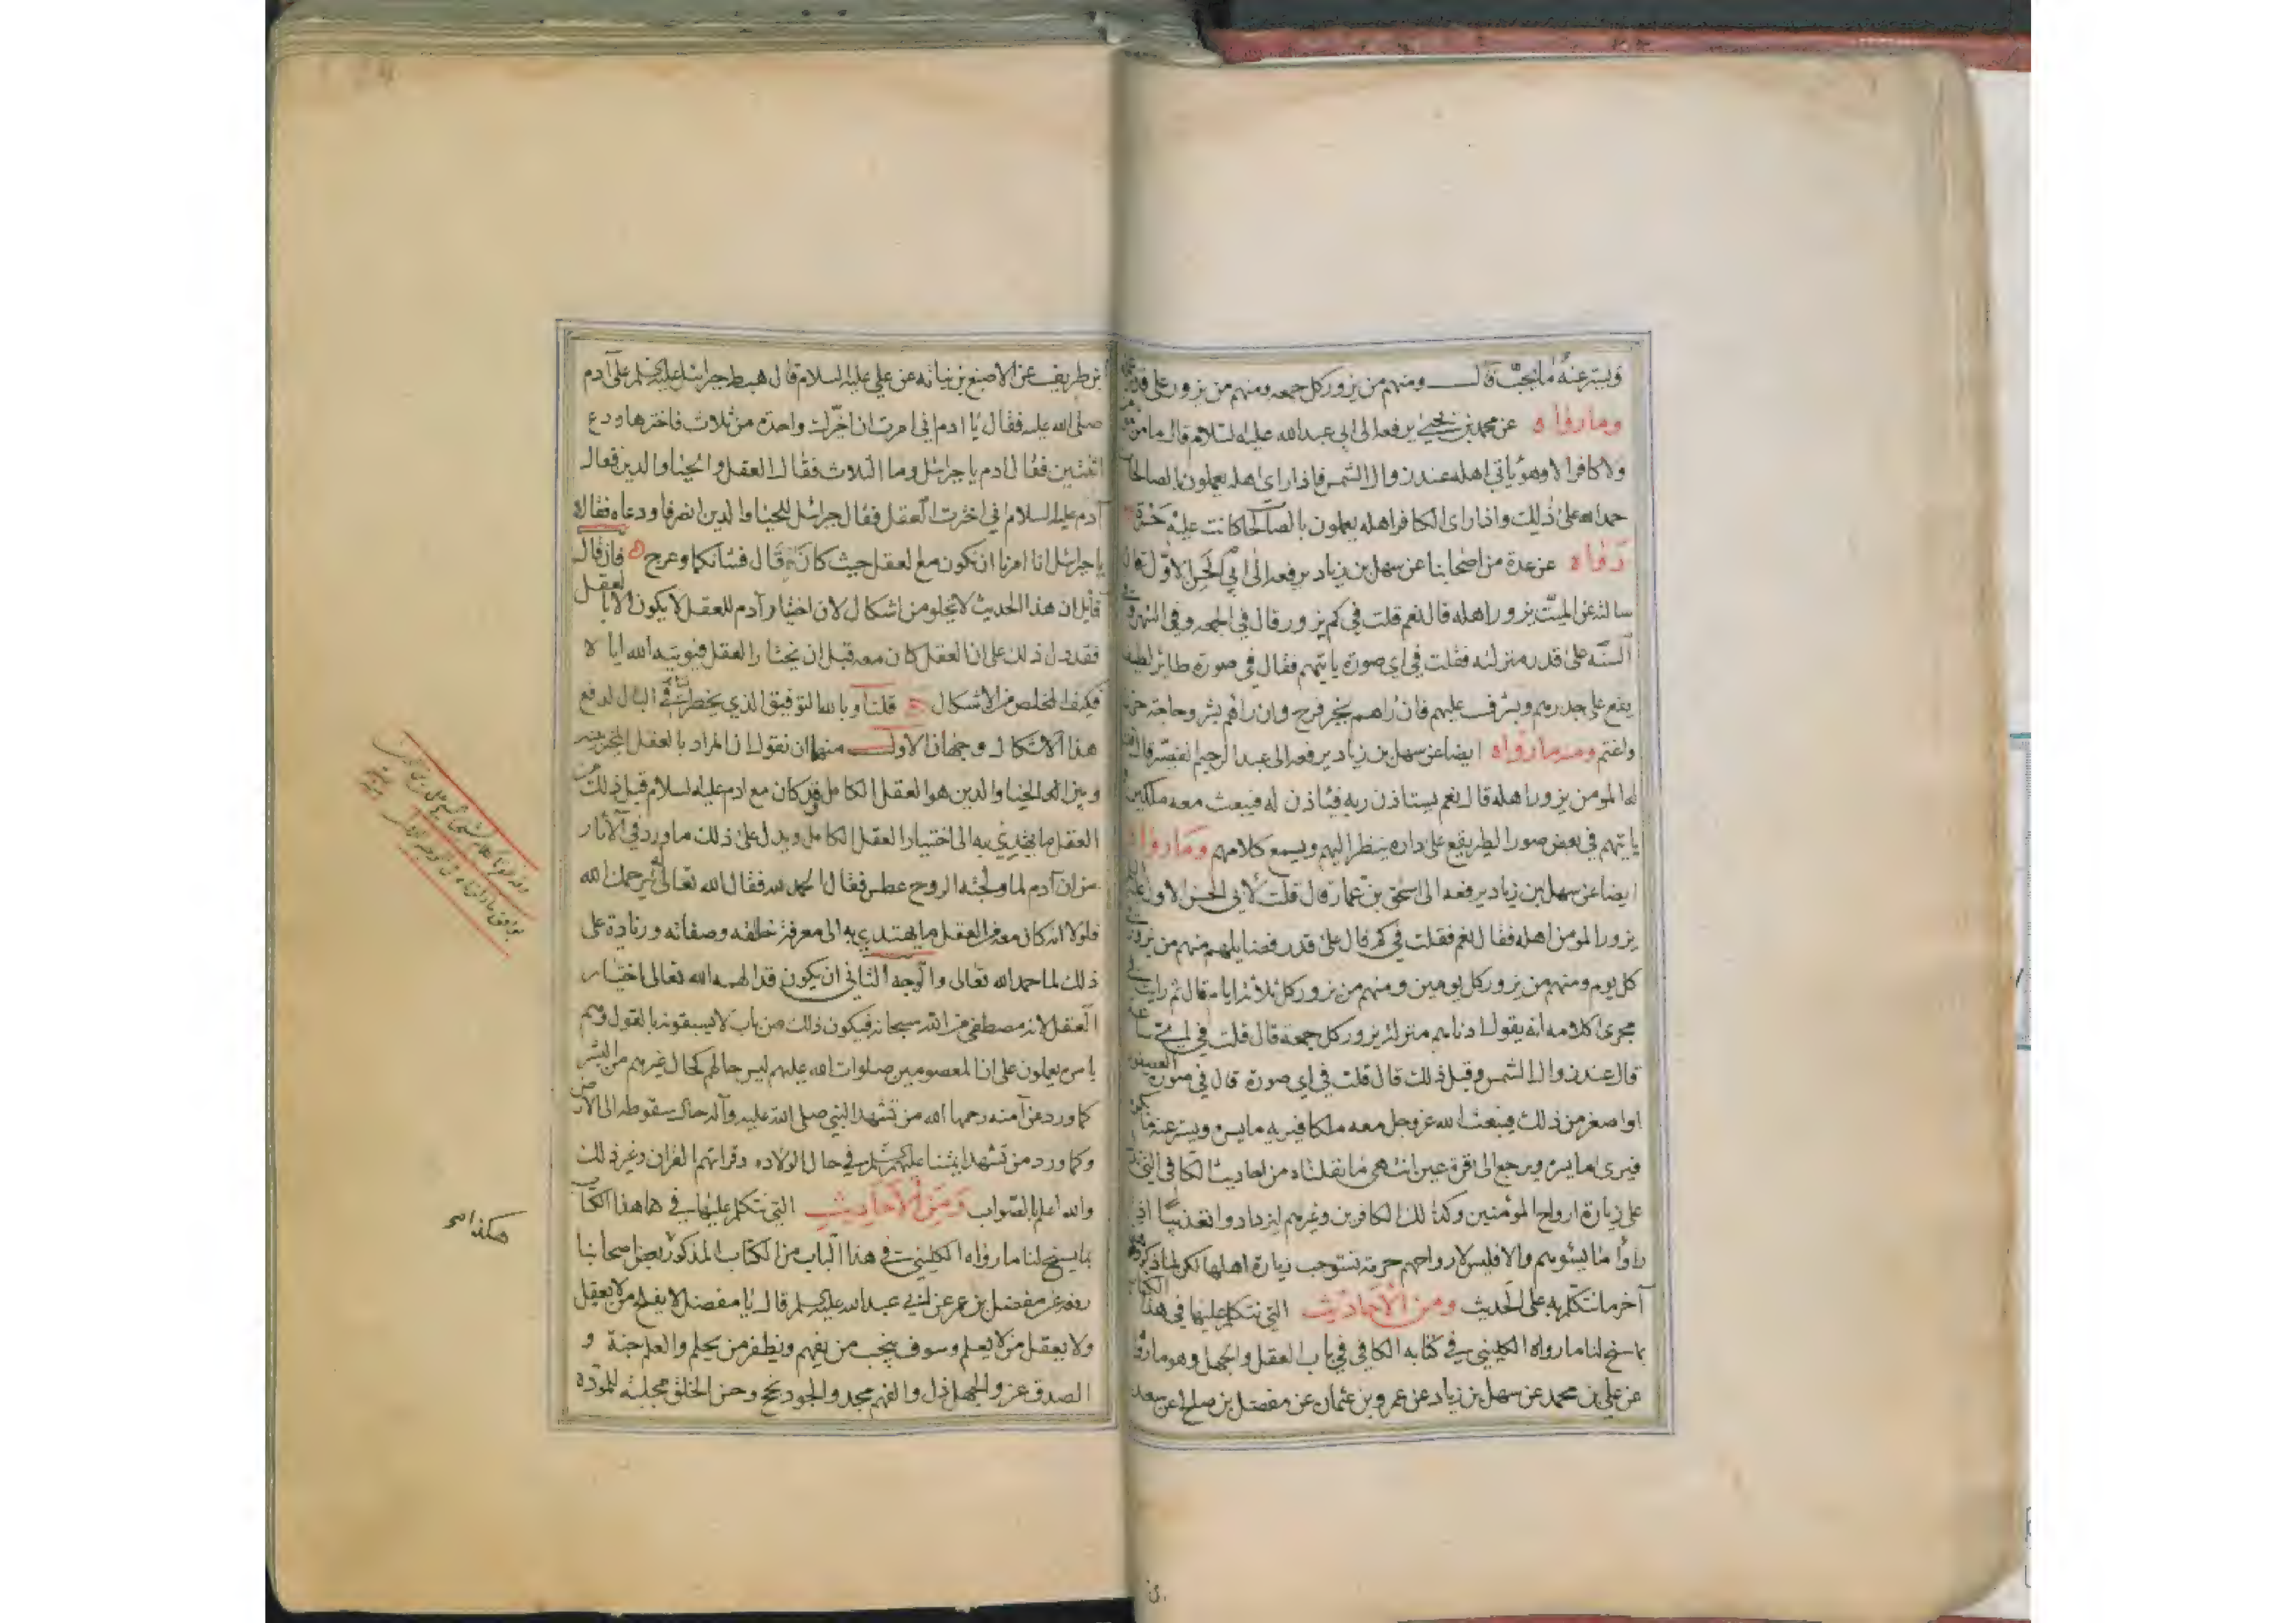 ويستر عنه ما يحب قال ومنهم من يزور كل جمعه ومنهم من يزور على قدر عمله
وما رواه عن محمد بن يحيى يرفعه الى ابي عبدالله عليه السلام قال ما من مؤمن
ولا كافر الا وهو ياتي اهله عند زوال الشمس فاذا راى اهله يعملون بالصالحات
حمد الله على ذلك واذا راى الكافر اهله يعملون بالصالحات كانت عليه حسرة
رواه عن عدة من اصحابنا عن سهل بن زياد يرفعه الى ابي الحسن الاول قال
سالته عن الميت يزور اهله قال نعم قلت في كم يزور قال في الجمعه وفي الشهر وفي
السنه على قدر منزلته فقلت في اي صورة ياتيهم فقال في صورة طائر لطيف
يقع على جدرهم ويشرف عليهم فان راهم بخير فرح وان راهم بشر وحاجة حزن
واغتم ومنه ما رواه ايضا عن سهل بن زياد يرفعه الى عبد الرحيم القصير قال قلت
له المومن يزور اهله قال نعم يستاذن ربه فياذن له فيبعث معه ملكين
ياتيهم في بعض صور الطير يقع على داره ينظر اليهم ويسمع كلامهم وما رواه
ايضا عن سهل بن زياد يرفعه الى اسحق بن عمار قال قلت لابي الحسن الاول
يزور المومن اهله فقال نعم فقلت في كم قال على قدر فضايلهم منهم من يزور
كل يوم ومنهم من يزور كل يومين ومنهم من يزور كل ثلاثة ايام قال ثم رايت في
مجرى كلامه انه يقول ادناهم منزلة يزور كل جمعة قال قلت في اي ساعة
قال عند زوال الشمس وقبل ذلك قال قلت في اي صورة قال في صورة العصفور
او اصغر من ذلك فيبعث الله عز وجل معه ملكا فيريه ما يسره ويستر عنه ما يكره
فيرى ما يسره ويرجع الى قرة عين انتهى ما نقلناه من احاديث الكافي
على زيارة ارواح المؤمنين وكذلك الكافرين وغيرهم ليزدادوا تعذيبا اذا
راوا ما يسؤهم والا فليس لارواحهم حرمة تستوجب زيارة اهلها لكن لما ذكروه
آخر ما نتكلم به على الحديث ومن الاحاديث التي نتكلم عليها في هذا الكتاب
بما سنح لنا ما رواه الكليني في كتابه الكافي في باب العقل والجهل وهو ما رواه
عن علي بن محمد عن سهل بن زياد عن عمرو بن عثمان عن مفضل بن صالح عن سعد
بن طريف عن الاصبغ بن نباته عن علي عليه السلام قال هبط جبرائيل عليه السلم على آدم
صلى الله عليه فقال يا ادم اني امرت ان اخيرك واحدة من ثلاث فاخترها ودع
اثنتين فقال ادم يا جبرائيل وما الثلاث فقال العقل والحيا والدين فقال
آدم عليه السلام اني اخترت العقل فقال جبرائيل للحيا والدين انصرفا ودعاه فقالا
يا جبرائيل انا امرنا ان نكون مع العقل حيث كان قال فشانكما وعرج فان قال
قايل ان هذا الحديث لا يخلو من اشكال لان اختيار آدم للعقل لا يكون الا بالعقل
فقد دل ذلك على ان العقل كان معه قبل ان يختار العقل
فكيف المخلص من الاشكال قلنا وبالله التوفيق الذي يخطر في البال لدفع
هذا الاشكال وجهان الاول منهما ان نقول ان المراد بالعقل المخير بينه
وبين الحيا والدين هو العقل الكامل وقد كان مع ادم عليه السلام قبل ذلك من
العقل ما يهتدي به الى اختيار العقل الكامل ويدل على ذلك ما ورد في الآثار
من ان آدم لما ولجته الروح عطس فقال الحمد لله فقال الله تعالى يرحمك الله
فلولا انه كان معه من العقل ما يهتدي به الى معرفة خالقه وصفاته وزيادة على
ذلك لما حمد الله تعالى والوجه الثاني ان يكون قد الهمه الله تعالى اختيار
العقل لانه مصطفى من الله سبحانه فيكون ذلك من باب لا يسبقونه بالقول وهم
بامره يعملون على ان المعصومين صلوات الله عليهم ليس حالهم كحال غيرهم من البشر
كما ورد عن آمنه رحمها الله من تشهد النبي صلى الله عليه وآله حال سقوطه الى الارض
وكما ورد من تشهد ائمتنا عليهم السلم في حال الولاده وقراتهم القران وغير ذلك
والله اعلم بالصواب ومن الاحاديث التي نتكلم عليها في هذا الكتاب
بما يسنح لنا ما رواه الكليني في هذا الباب من الكتاب المذكور بعض اصحابنا
رفعه عن مفضل بن عمر عن ابي عبد الله عليه السلم قال يا مفضل لا يفلح من لا يعقل
ولا يعقل من لا يعلم وسوف ينجب من يفهم ويظفر من يحلم والعلم جنة و
الصدق عز والجهل ذل والفهم مجد والجود نجح وحسن الخلق مجلبة للمودة